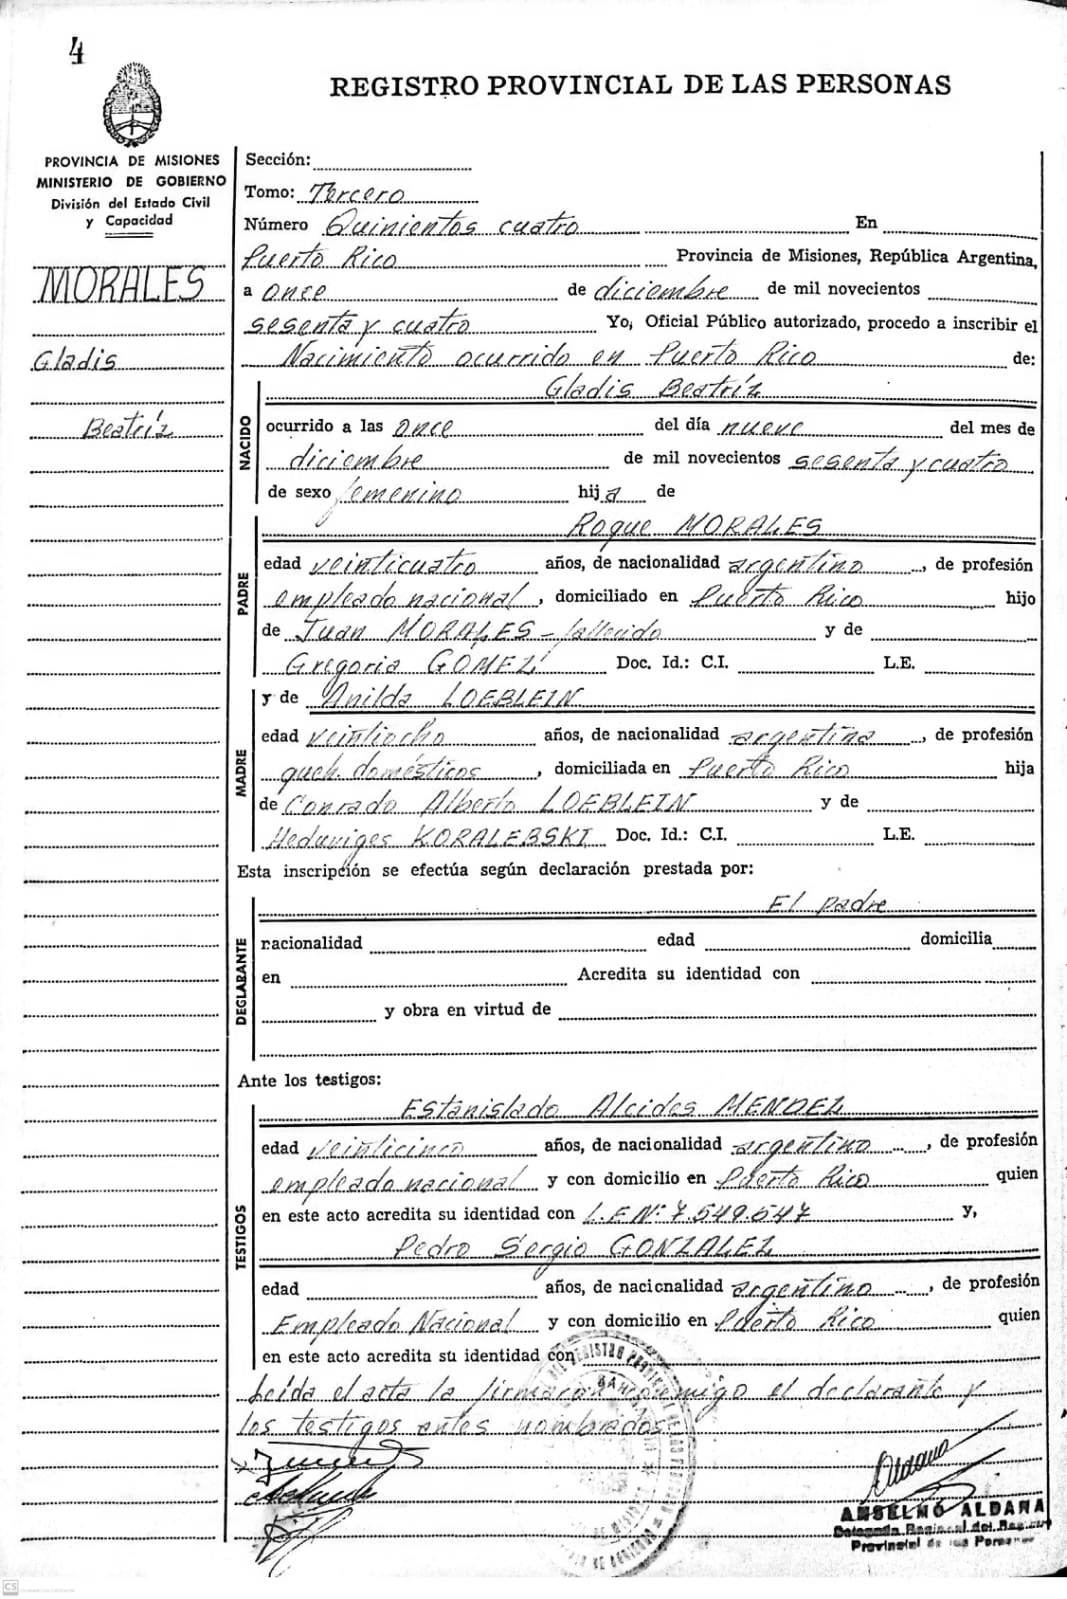 4
REGISTRO PROVINCIAL DE LAS PERSONAS
PROVINCIA DE MISIONES
MINISTERIO DE GOBIERNO
División del Estado Civil
y Capacidad
MORALES
Gladis
Beatríz
Sección:
Tomo: Tercero
Número Quinientos cuatro En
Puerto Rico Provincia de Misiones, República Argentina,
a once de diciembre de mil novecientos
sesenta y cuatro Yo, Oficial Público autorizado, procedo a inscribir el
Nacimiento ocurrido en Puerto Rico de:
NACIDO
Gladis Beatríz
ocurrido a las once del día nueve del mes de
diciembre de mil novecientos sesenta y cuatro
de sexo femenino hija de
PADRE
Roque MORALES
edad veinticuatro años, de nacionalidad argentino, de profesión
empleado nacional, domiciliado en Puerto Rico hijo
de Juan MORALES - fallecido y de
Gregoria GOMEZ Doc. Id.: C.I. L.E.
y de Anilda LOEBLEIN
MADRE
edad veintiocho años, de nacionalidad argentina, de profesión
queh. domésticos, domiciliada en Puerto Rico hija
de Conrado Alberto LOEBLEIN y de
Heduviges KORALEBSKI Doc. Id.: C.I. L.E.
Esta inscripción se efectúa según declaración prestada por:
DECLARANTE
El padre
nacionalidad edad domicilia
en Acredita su identidad con
y obra en virtud de
Ante los testigos:
TESTIGOS
Estanislado Alcides MENDEZ
edad veinticinco años, de nacionalidad argentino, de profesión
empleado nacional y con domicilio en Puerto Rico quien
en este acto acredita su identidad con L.E Nº 7.549.647 y,
Pedro Sergio GONZALEZ
edad años, de nacionalidad argentino, de profesión
Empleado Nacional y con domicilio en Puerto Rico quien
en este acto acredita su identidad con
Leída el acta la firmaran conmigo el declarante y
los testigos antes nombrados
Aldana
ANSELMO ALDANA
Delegado Regional del Registro
Provincial de las Personas
CS